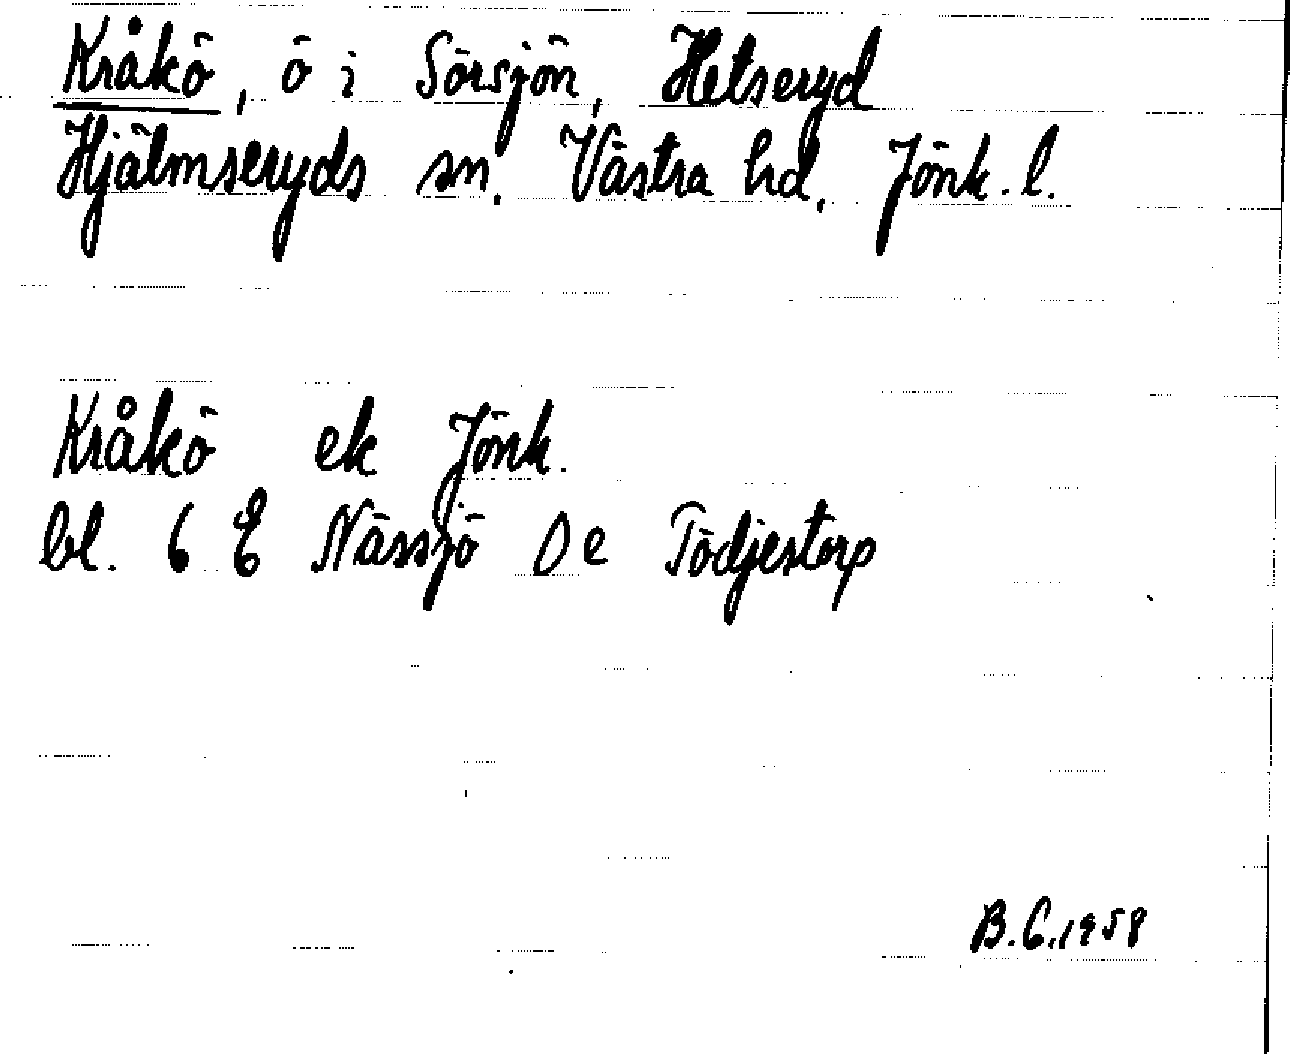 Kråkö, ö i Sörsjön, Hetseryd
Hjälmseryds sn. Västra hd. Jönk. l.
Kråkö ek Jönk.
bl. 6 E Nässjö 0 e Tödjestorp
B.C. 1958